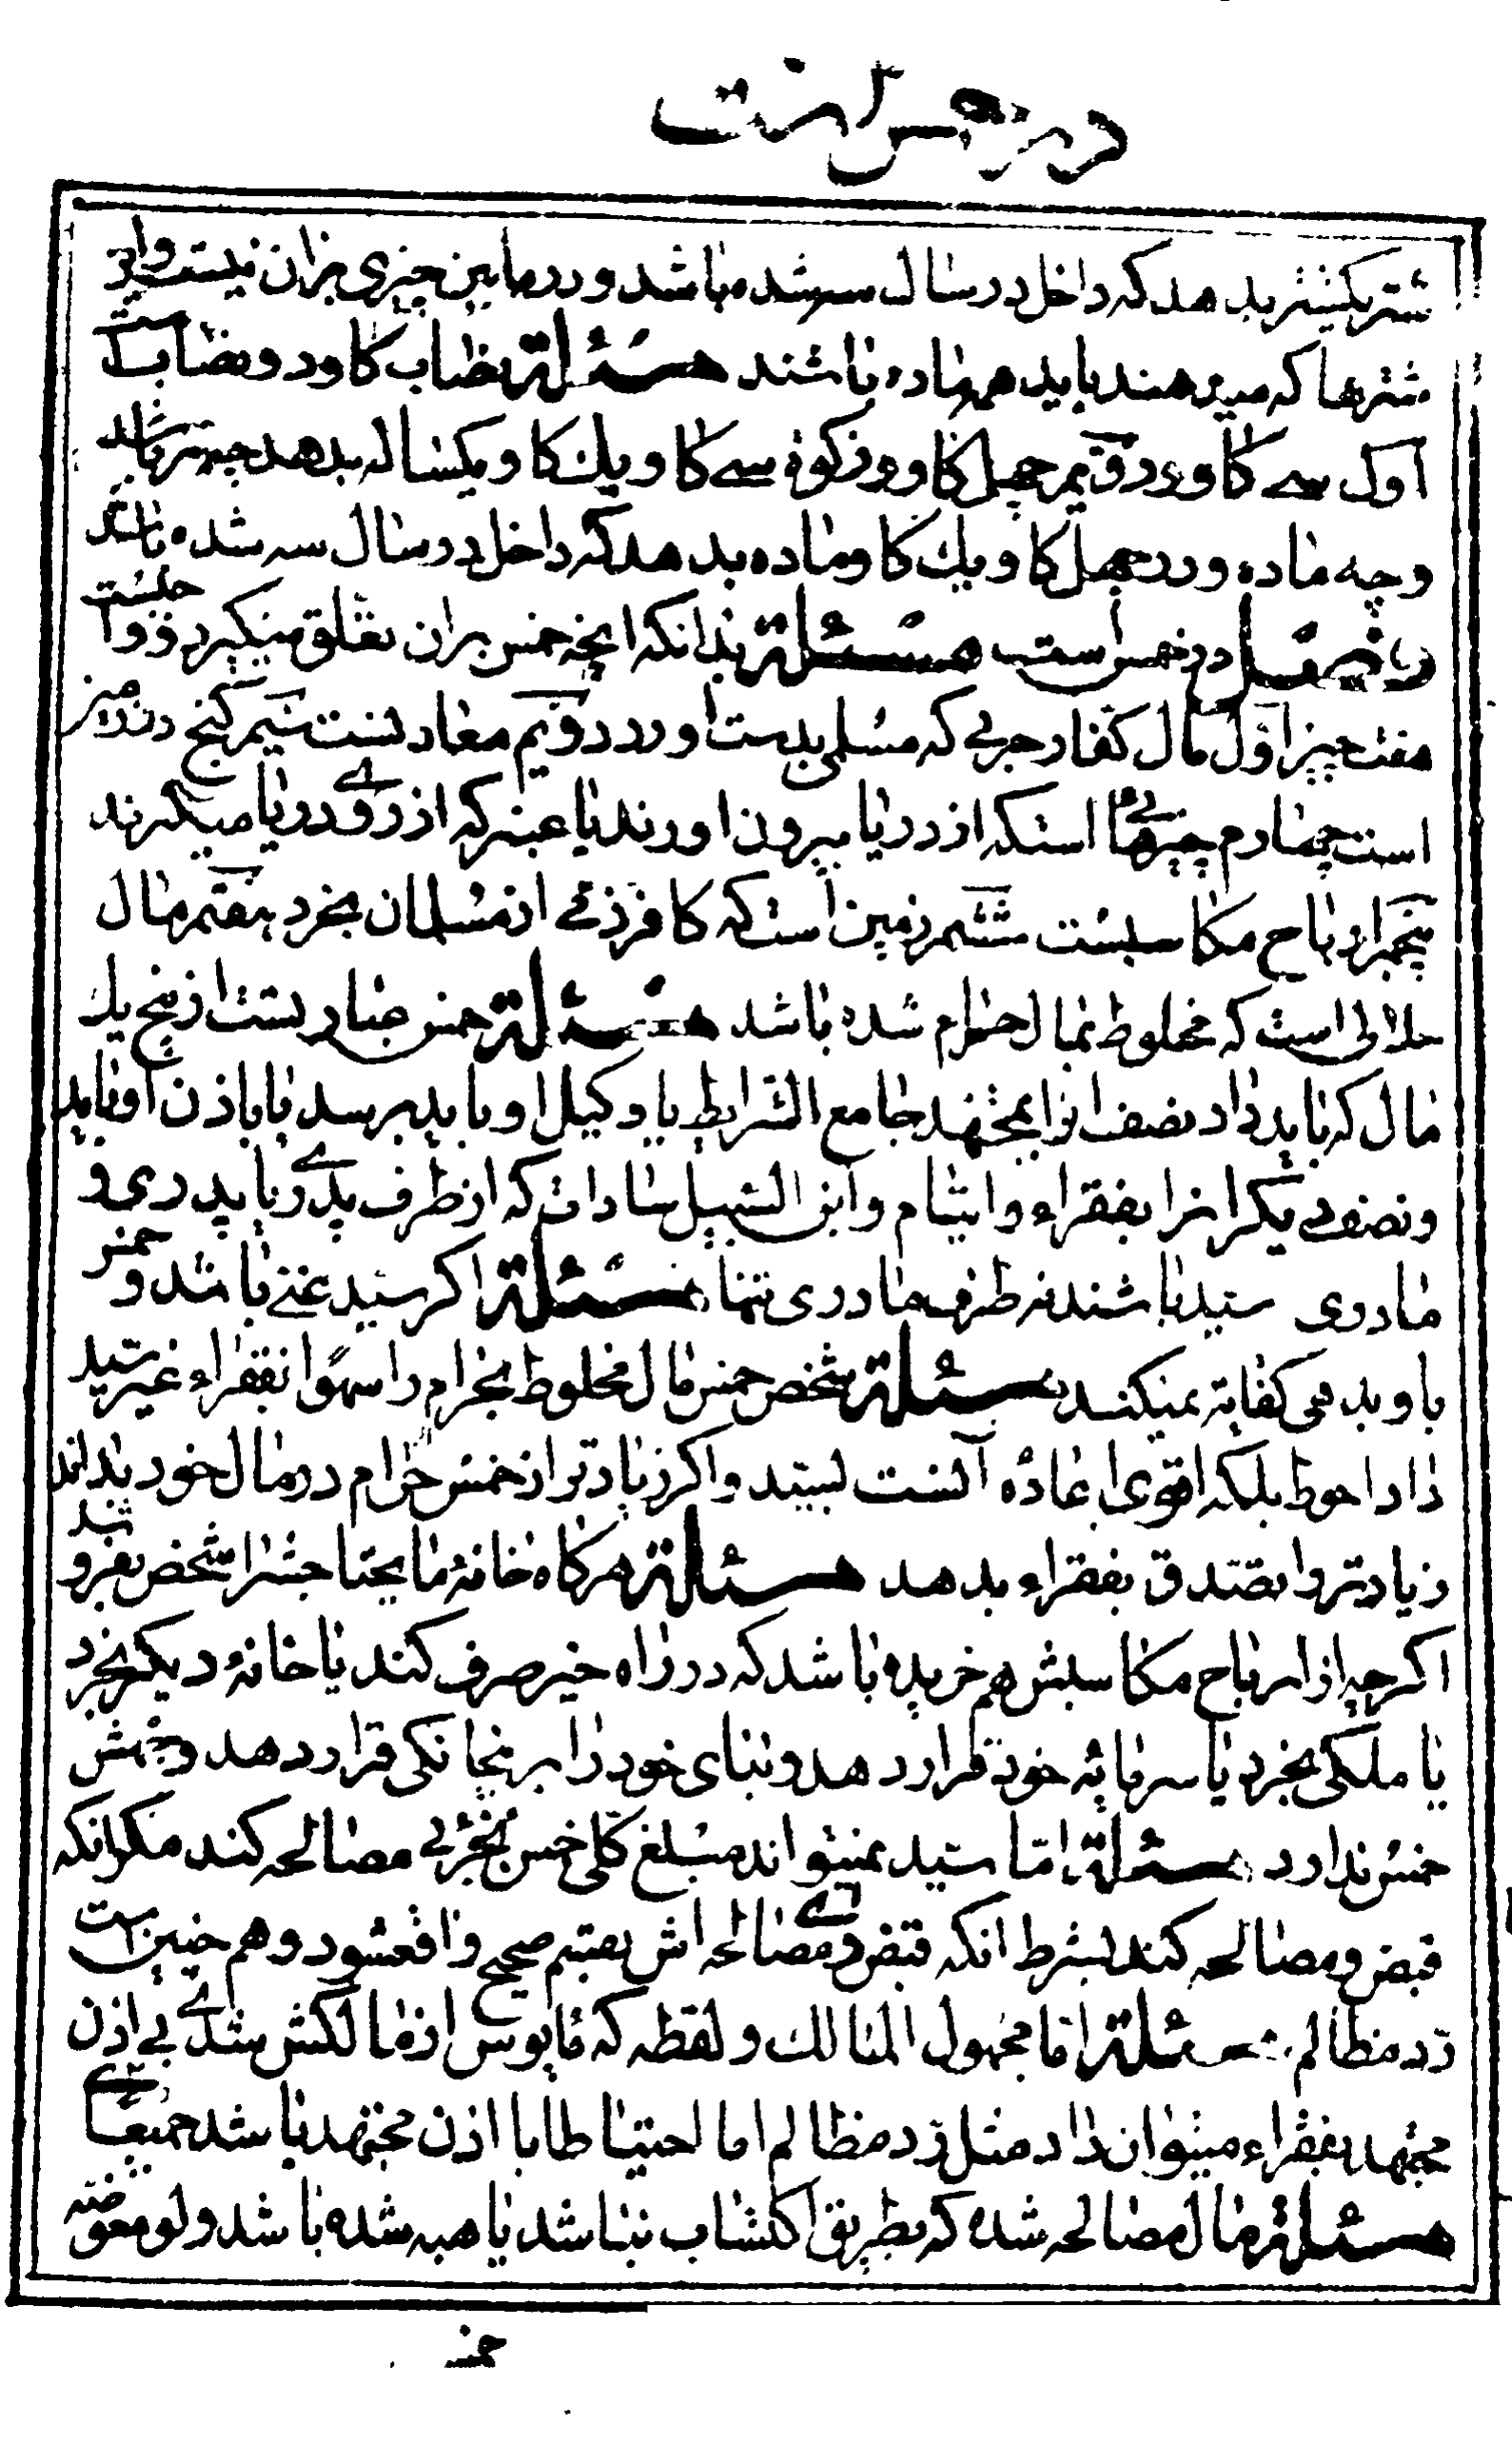 در خمس است
شتر یکشتر بدهد که داخل در سال سه شده باشد و در مابین چیزی بر ان نیست و این
شترها که میدهند باید همه ماده باشند مسئلة نصاب کاو دو نصابست
اول سے کاو و دویم چهل کاو و زکوة سے کاو یك کاو یکساله بدهد چه نر باشد
و چه ماده و در چهل کاو یك کاو ماده بدهد که داخل در سال سه شده باشد
فصل در خمس است مسئلة بدانکه انچه خمس بران تعلق میکیرد
هفت چیز اول مال کفار حربے که مسلمی بدست اورد دویم معادنست سیم کنج در زمین
است چهارم چیزهائے استکه از دریا بیرون اورند یا عنبر که از روے دریا میکیرند
پنجم ارباح مکاسبست ششم زمین است که کافر ذمے از مسلمان بخرد هفتم مال
حلالی است که مخلوط بمال حرام شده باشد مسئلة خمس عبارتست از پنج یك
مال که باید داد نصف انرا بمجتهد جامع الشرایط یا وکیل او باید برسد یا باذن او باید
و نصف دیکر انرا بفقراء و ایتام و ابن السبیل سادات که از طرف پدرے یا پدری و
مادری سید باشند نه طرف مادری تنها مسئلة اکر سید غنے باشد و خمس
باو بدهی کفایة نمیکند مسئلة شخص خمس مال مخلوط بحرام را سهوا بفقراء غیر سید
داد احوط بلکه اقوی اعادۀ آنست بسید و اکر زیادتر از خمس حرام در مال خود بداند
زیادتر را تصدق بفقراء بدهد مسئلة هرکاه خانۀ مایحتاجش را شخص بفروشد
اکرچه از ارباح مکاسبش هم خریده باشد که در راه خیر صرف کند یا خانۀ دیکر بخرد
یا ملکی بخرد یا سرمایۀ خود قرار دهد و بنای خود را بر نچانکی قرار دهد وجهش
خمس ندارد مسئلة اما سید نمیتواند مبلغ کلی خمس بجزئے مصالحه کند مکر انکه
قبض و مصالحه کند بشرط انکه قبض و مصالحه اش بقیتم صحیح واقع شود و هم چنین است
رد مظالم مسئلة اما مجهول المالك و لقطه که مایوس از مالکش شدے بے اذن
مجتهد بفقراء میتوان داد مثل رد مظالم اما احتیاطا با اذن مجتهد باشد جمیعا
مسئلة مال مصالحه شده که بطریق اکتساب نباشد یا هبه شده باشد ولو معوضه
خمس